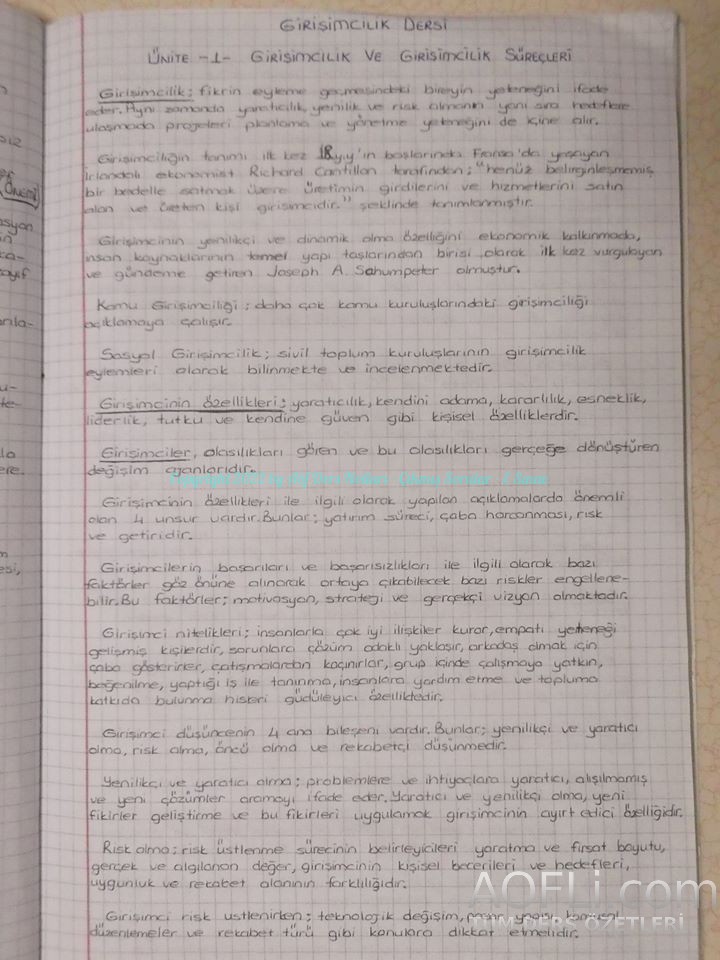 GİRİŞİMCİLİK DERSİ
ÜNİTE -1- GİRİŞİMCİLİK VE GİRİŞİMCİLİK SÜREÇLERİ
Girişimcilik; fikrin eyleme geçmesindeki bireyin yeteneğini ifade
eder. Aynı zamanda yaratıcılık, yenilik ve risk almanın yanı sıra hedeflere
ulaşmada projeleri planlama ve yönetme yeteneğini de içine alır.
Girişimciliğin tanımı ilk kez 18.yy'ın başlarında Fransa'da yaşayan
İrlandalı ekonomist Richard Cantillon tarafından; "henüz belirginleşmemiş
bir bedelle satmak üzere üretimin girdilerini ve hizmetlerini satın
alan ve üreten kişi girişimcidir." şeklinde tanımlanmıştır.
Girişimcinin yenilikçi ve dinamik olma özelliğini ekonomik kalkınmada,
insan kaynaklarının temel yapı taşlarından birisi olarak ilk kez vurgulayan
ve gündeme getiren Joseph A. Schumpeter olmuştur.
Kamu Girişimciliği; daha çok kamu kuruluşlarındaki girişimciliği
açıklamaya çalışır.
Sosyal Girişimcilik; sivil toplum kuruluşlarının girişimcilik
eylemleri olarak bilinmekte ve incelenmektedir.
Girişimcinin özellikleri; yaratıcılık, kendini adama, kararlılık, esneklik,
liderlik, tutku ve kendine güven gibi kişisel özelliklerdir.
Girişimciler, olasılıkları gören ve bu olasılıkları gerçeğe dönüştüren
değişim ajanlarıdır.
Girişimcinin özellikleri ile ilgili olarak yapılan açıklamalarda önemli
olan 4 unsur vardır. Bunlar; yatırım süreci, çaba harcanması, risk
ve getiridir.
Girişimcilerin başarıları ve başarısızlıkları ile ilgili olarak bazı
faktörler göz önüne alınarak ortaya çıkabilecek bazı riskler engellene-
bilir. Bu faktörler; motivasyon, strateji ve gerçekçi vizyon olmaktadır.
Girişimci nitelikleri; insanlarla çok iyi ilişkiler kurar, empati yeteneği
gelişmiş kişilerdir, sorunlara çözüm odaklı yaklaşır, arkadaş olmak için
çaba gösterirler, çatışmalardan kaçınırlar, grup içinde çalışmaya yatkın,
beğenilme, yaptığı iş ile tanınma, insanlara yardım etme ve topluma
katkıda bulunma hisleri güdüleyici özelliktedir.
Girişimci düşüncenin 4 ana bileşeni vardır. Bunlar; yenilikçi ve yaratıcı
olma, risk alma, öncü olma ve rekabetçi düşünmedir.
Yenilikçi ve yaratıcı olma; problemlere ve ihtiyaçlara yaratıcı, alışılmamış
ve yeni çözümler aramayı ifade eder. Yaratıcı ve yenilikçi olma, yeni
fikirler geliştirme ve bu fikirleri uygulamak girişimcinin ayırt edici özelliğidir.
Risk alma; risk üstlenme sürecinin belirleyicileri yaratma ve fırsat boyutu,
gerçek ve algılanan değer, girişimcinin kişisel becerileri ve hedefleri,
uygunluk ve rekabet alanının farklılığıdır.
Girişimci risk üstlenirken; teknolojik değişim, pazar yapısı, kamusal
düzenlemeler ve rekabet türü gibi konulara dikkat etmelidir.
AOFLi.com
TÜM DERS ÖZETLERİ